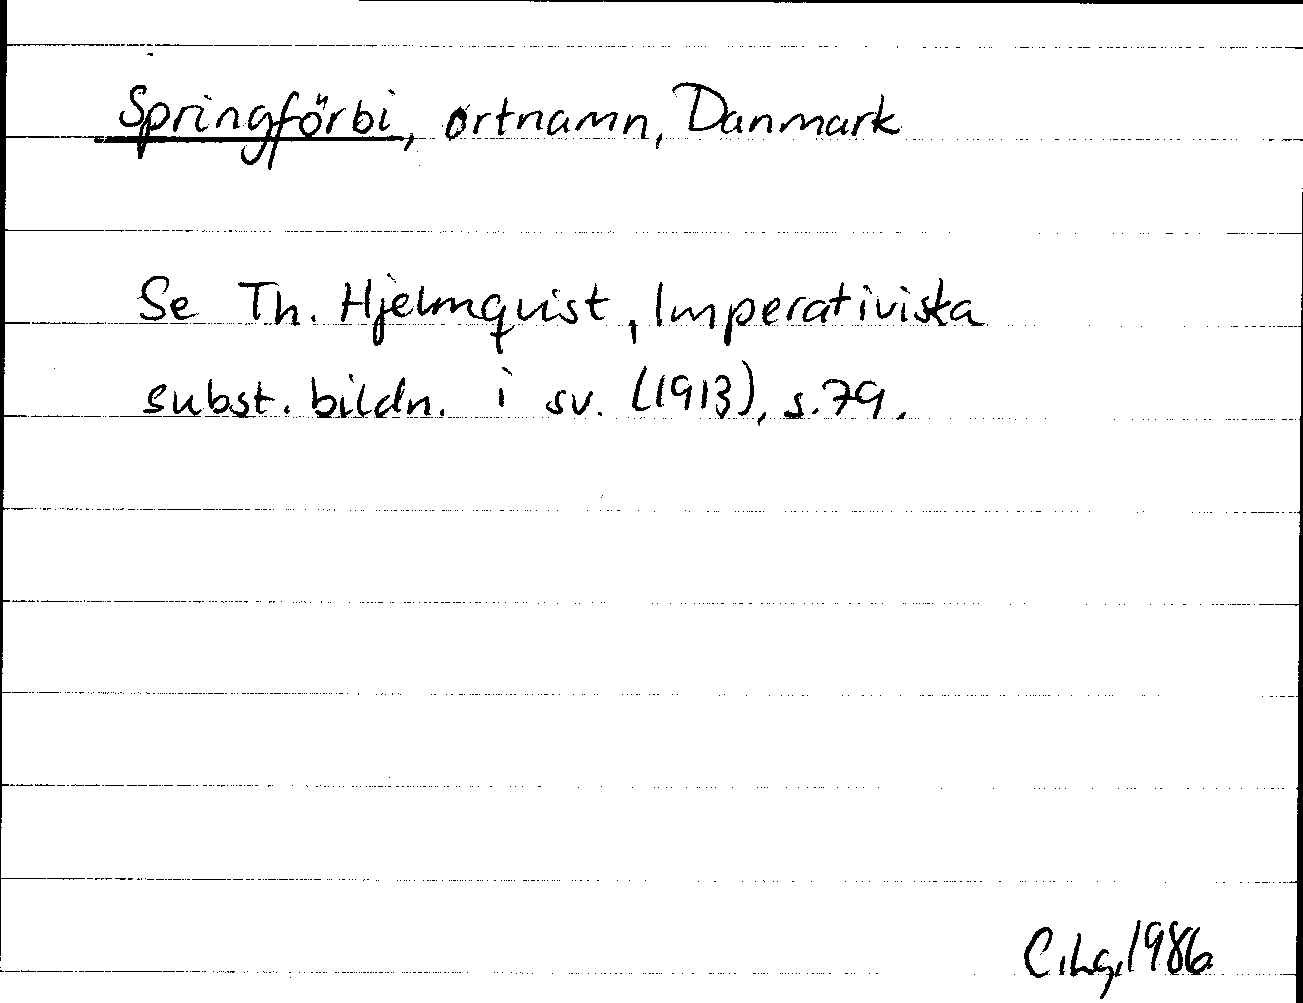 Springförbi, ortnamn, Danmark
Se Th. Hjelmquist, Imperativiska
subst. bildn. i sv. (1913), s.79.
C.Lg,1986